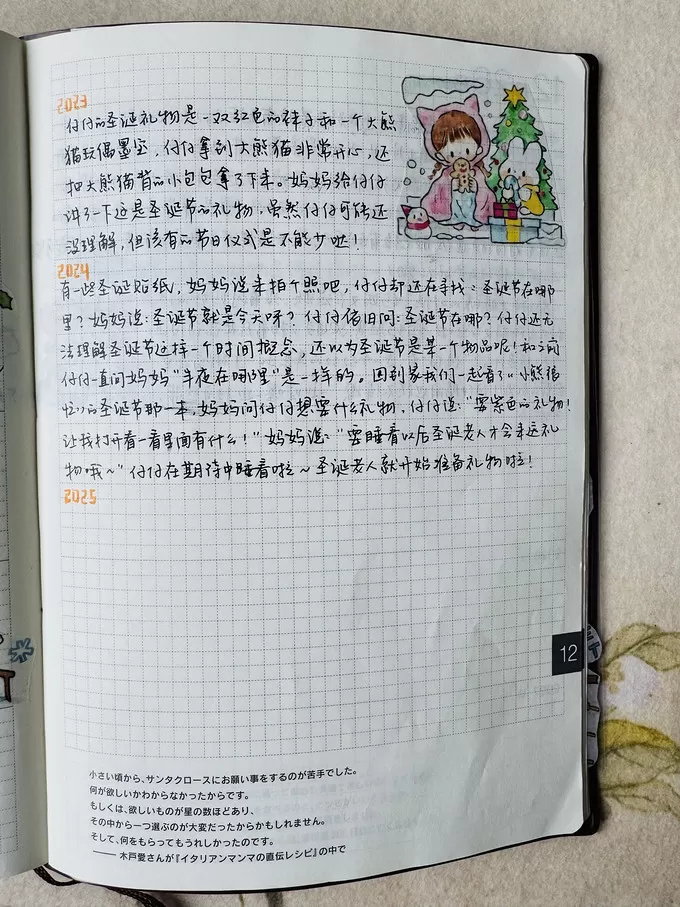 2023
付付的圣诞礼物是一双红色的袜子和一个大熊
猫玩偶墨宝,付付拿到大熊猫非常开心,还
把大熊猫背的小包包拿了下来。妈妈给付付
讲了一下这是圣诞节的礼物,虽然付付可能还
没理解,但该有的节日仪式是不能少哒!
2024
有一些圣诞贴纸,妈妈说来拍个照吧,付付却还在寻找:圣诞节在哪
里?妈妈说:圣诞节就是今天呀?付付依旧问:圣诞节在哪?付付还无
法理解圣诞节这样一个时间概念,还以为圣诞节是某一个物品呢!和之前
付付一直问妈妈“半夜在哪里”是一样的。回到家我们一起看了《小熊很
忙》的圣诞节那一本,妈妈问付付想要什么礼物,付付说:“要紫色的礼物!
让我打开看一看里面有什么!”妈妈说:“要睡着以后圣诞老人才会来送礼
物哦~”付付在期待中睡着啦~圣诞老人就开始准备礼物啦!
2025
12
小さい頃から、サンタクロースにお願い事をするのが苦手でした。
何が欲しいかわからなかったからです。
もしくは、欲しいものが星の数ほどあり、
その中から一つ選ぶのが大変だったからかもしれません。
そして、何をもらってもうれしかったのです。
—— 木戸愛さんが『イタリアンマンマの直伝レシピ』の中で